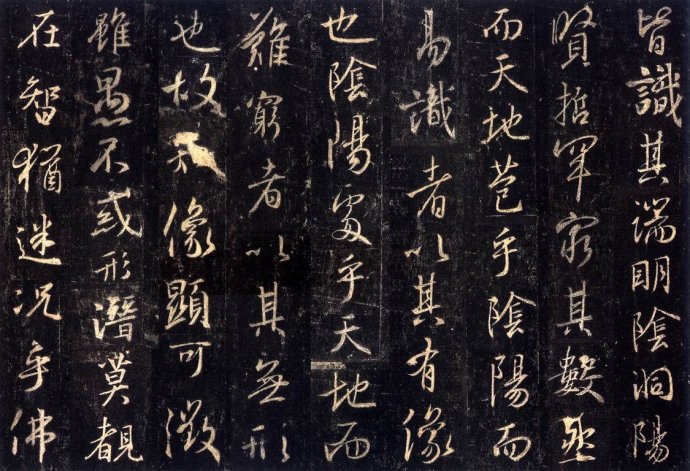 皆識其端明陰洞陽
賢哲罕窮其數然
而天地苞乎陰陽而
易識者以其有像
也陰陽處乎天地而
難窮者以其無形
也故知像顯可徵
雖愚不惑形潛莫覩
在智猶迷況乎佛